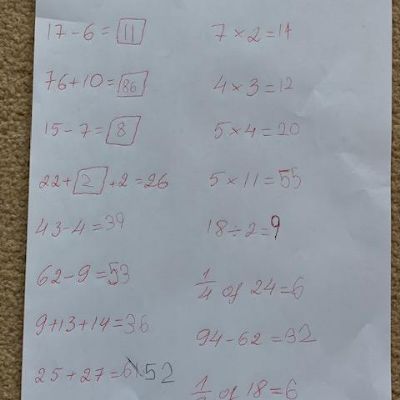 17-6=11
76+10=86
15-7=8
22+2+2=26
43-4=39
62-9=53
9+13+14=36
25+27=52
7×2=14
4×3=12
5×4=20
5×11=55
18÷2=9
1/4 of 24=6
94-62=32
of 18=6